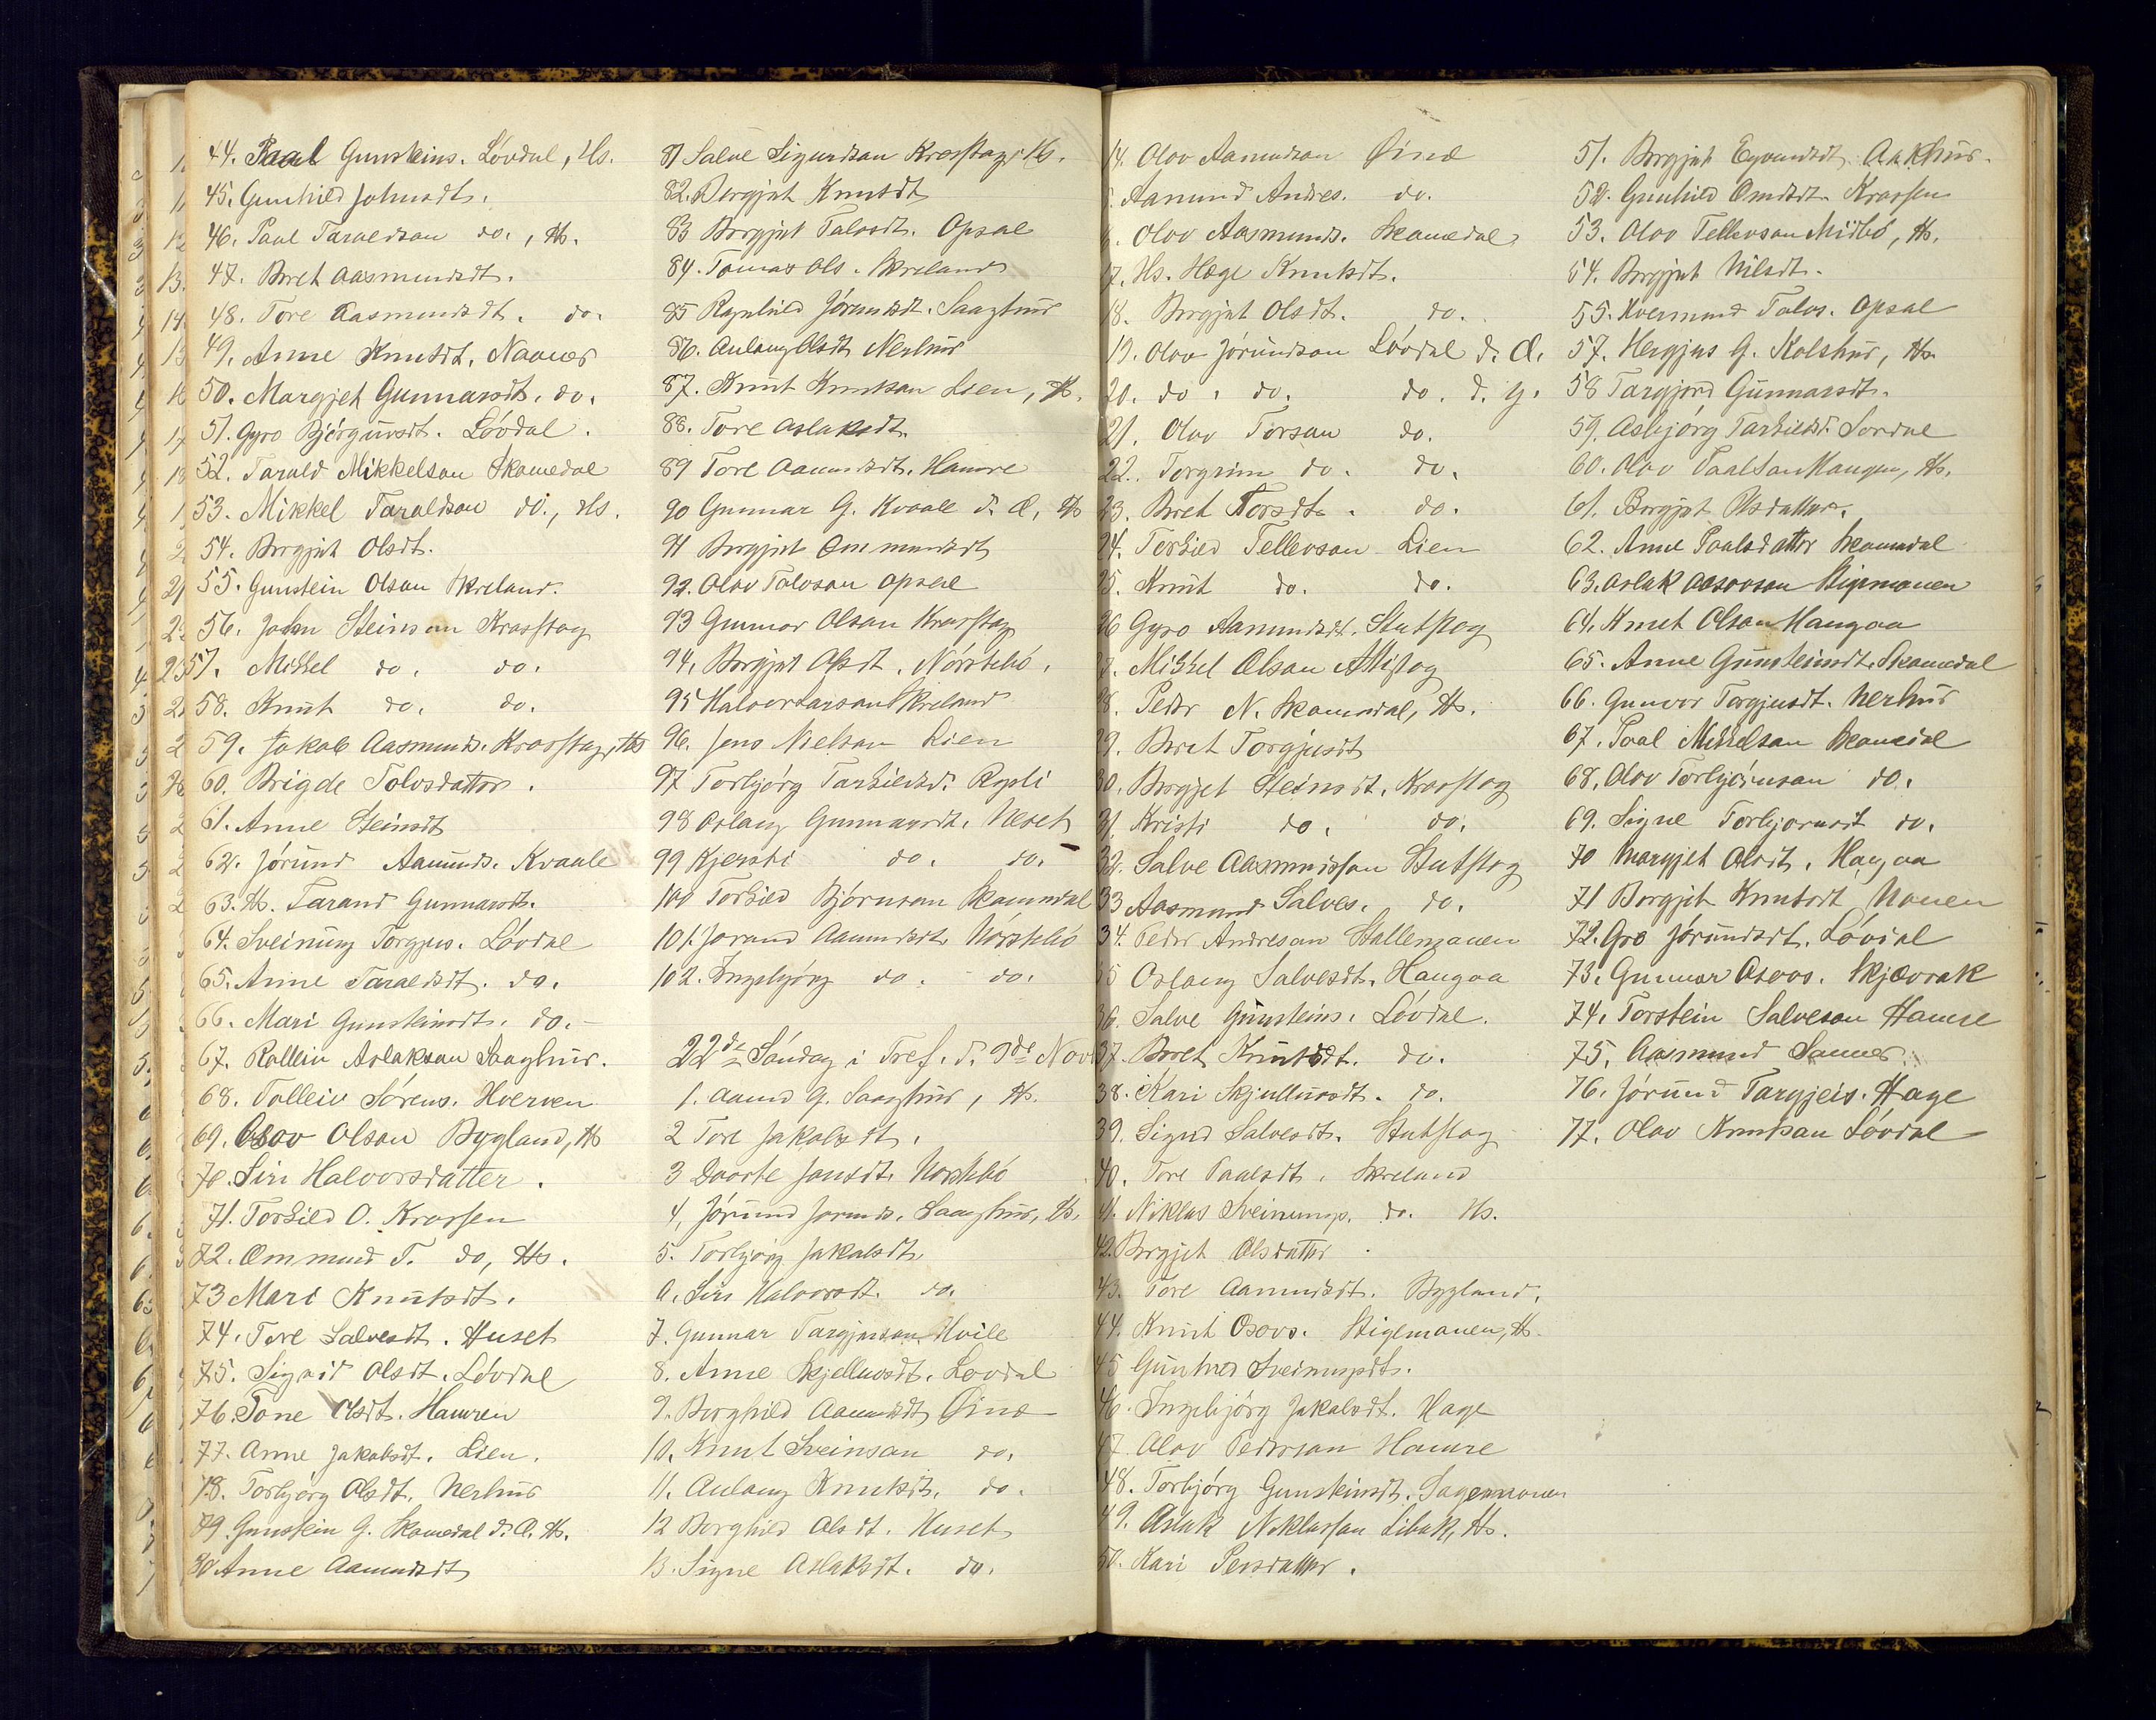 44. Paal Gunsteins. Lövdal, Hs.
45. Gunhild Johnsdt.
46. Paal Taraldson do., Hs.
47. Beret Aasmundsdt.
48. Tore Aasmundsdt. do.
49. Anne Knutsdt. Naanes
50. Margjet Gunnarsdt. do.
51. Gyro Björgusdt. Lövdal.
52. Tarald Mikkelson Skamedal
53. Mikkel Taraldson do., Hs.
54. Borgjet Olsdt.
55. Gunstein Olson Skreland.
56. John Steinson Kraastog
57. Mikkel do. do.
58. Knut do. do.
59. Jakob Aasmunds. Kraastog, Hs
60. Brigde Tolvsdatter.
61. Anne Steinsdt
62. Jörund Aamunds. Kvaale
63. Hs. Tarand Gunnarsdt.
64. Sveinung Torgjus. Lövdal
65. Anne Taraldsdt. do.
66. Mari Gunsteinsdt. do.
67. Rolleiv Aslakson Saaghus.
68. Tolleiv Sörens. Hverven
69. Osov Olson Bygland, Hs
70. Siri Halvorsdatter.
71. Torkild O. Krossen
72. Ommund T. do, Hs.
73 Mari Knutsdt.
74. Tore Salvesdt. Huset
75. Sigrid Olsdt. Lövdal
76. Tone Olsdt. Hamren
77. Anne Jakobsdt. Lien.
78. Torbjörg Olsdt. Nerhus
79. Gunstein G. Skamedal d. Æ. Hs.
80 Anne Aamundsdt
81 Salve Sigurdson Kraastog, Hs.
82. Borgjet Knutsdt
83 Borgjet Talosdt. Opsal
84. Tomas Ols. Skreland
85 Ragnhild Jörundsdt. Saaghus
86. Aulaug Olsdt Nerhus
87. Knut Knutson Lien, Hs.
88. Tore Aslaksdt.
89 Tore Aamundsdt. Hamre
90 Gunnar G. Kvaale d. Æ, Hs
91 Borgjet Ommundsdt
92. Olov Tolvson Opsal
93 Gunnar Olson Kraastog
94. Borgjet Olsdt. Norstebö.
95 Halvor Larson Skreland
96. Jens Nielson Lien
97 Torbjörg Tarkildsd. Rysli
98 Oslaug Gunnarsdt. Neset
99 Kjersti do. do.
100 Torkild Björnson Skammdal
101. Jorand Aamundsdt. Norstebö
102. Ingebjörg do. do.
22de Söndag i Tref. d. 9de Nov.
1. Aamd G. Saaghus, Hs.
2 Tore Jakobsdt.
3 Dorte Jonsdt. Norstebö
4, Jörund Jorunds. Saaghus, Hs.
5. Torbjörg Jakobsdt.
6. Siri Halvorsdt. do.
7. Gunnar Targjusson Hvile
8. Anne Skjellusdt. Lovdal
9. Borghild Aamundsdt Öine
10. Knut Sveinson do.
11. Aulaug Knutsdt. do.
12 Borghild Olsdt. Huset
13. Signe Aslaksdt. do.
14. Olov Aamundson Öine
Aamund Andres. do.
Olov Aasmunds. Skamedal
17. Hs. Hæge Knutsdt.
18. Borgjet Olsdt. do.
19. Olov Jörundson Lövdal d. Æ.
20. do. do. do. d. y.
21. Olov Torson do.
22. Torgrim do. do.
23. Beret Torsdt. do.
24. Torkild Tellevson Lien
25. Knut do. do.
26 Gyro Aamundsdt. Stutstog
Mikkel Olson Attistog
Peder N. Skamedal, Hs.
29. Beret Torgjusdt
30. Borgjet Steinsdt. Kraastog
31. Kristi do. do.
32. Salve Aasmundson Stutstog
33 Aasmund Salves. do.
34. Peder Andreson Stallemonen
35 Oslaug Salvesdt. Haugaa
36. Salve Gunsteins. Lövdal.
37. Beret Knutsdt. do.
38. Kari Skjellusdt. do.
39. Sigrid Salvesdt. Stutstog
40. Tore Paalsdt. Skreland
41. Niklas Sveinungs. do. Hs.
42. Borgjet Olsdatter.
43. Tore Aamundsdt. Bygland.
44. Knut Osovs. Stigemonen, Hs.
45 Gunhild Sveinungsdt.
46. Ingebjörg Jakobsdt. Hage
47 Olov Pederson Hamre
48. Torbjörg Gunsteinsdt. Sagemonen
49. Aslak Niklasson Libak, Hs.
50. Kari Persdatter.
51. Borgjet Eyvindsdt. Aakhus.
52. Gunhild Omdsdt. Krossen
53. Olov Tellevson Midbö, Hs.
54. Borgjet Nilsdt.
55. Kvermund Tolvs. Opsal
57. Hergjus G. Kolshus, Hs.
58 Targjerd Gunnarsdt.
59. Asbjörg Tarkildsd. Lovdal
60. Olov Paalson Haugen, Hs.
61. Borgjet Olsdatter.
62. Anne Paalsdatter Skamedal
63. Aslak Aasovson Stigemonen
64. Knut Olson Haugaa
65. Anne Gunsteinsdt. Skamedal
66. Gunvor Torgjusdt. Nerhus
67. Paal Mikkelson Skamedal
68. Olov Torbjörnson do.
69. Signe Torbjornsdt do.
70 Margjet Olsdt. Haugaa
71 Borgjet Knutsdt Monen
72. Gro Jörundsdt. Lövdal
73. Gunnar Osovs. Skjævrak
74. Torstein Salveson Hamre
75. Aasmund Sannes
76. Jörund Targjeis. Hage
77. Olov Knutson Lövdal